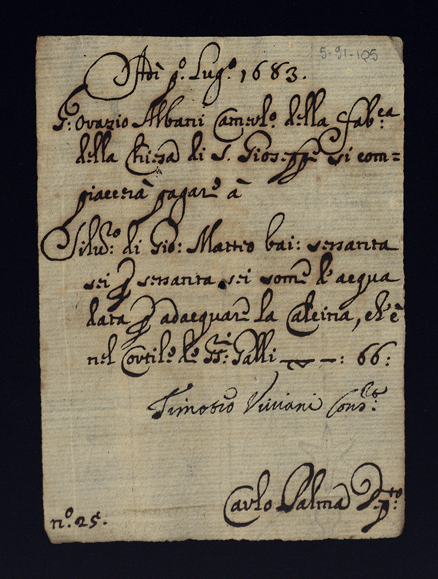 5-91-105
Adì p.º Lug.º 1683.
S.r Orazio Albani Camerl.º della fab.ca
della Chiesa di S. Gioseppe si com=
piacerà pagare à
Silv.º di Gio: Matteo bai: sessanta
sei p sessanta sei some d'acqua
data p adacquare la Calcina, ch'è
nel Cortile de SS.ri Galli —: 66:
Timoteo Viviani Cons.re
Carlo Palma D.to
n.º 25.